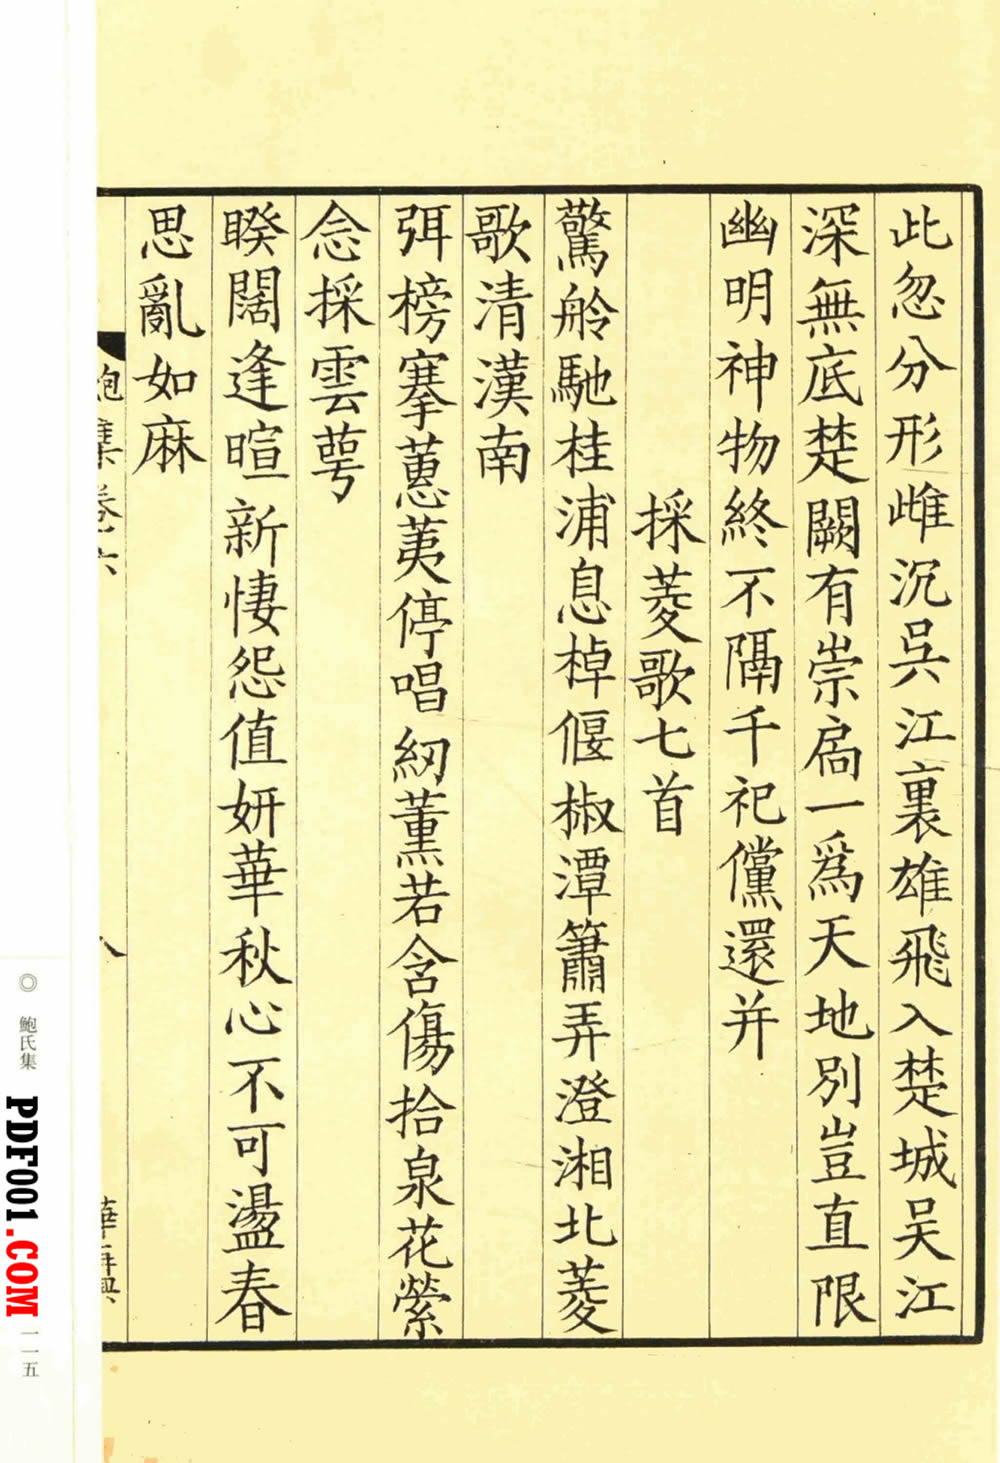 此忽分形雌沉吳江裏雄飛入楚城吳江
深無底楚闕有崇扃一爲天地別豈直限
幽明神物終不隔千祀儻還并
採菱歌七首
驚舲馳桂浦息棹偃椒潭簫弄澄湘北菱
歌清漢南
弭榜搴蕙荑停唱紉薰若含傷拾泉花縈
念採雲萼
睽闊逢暄新悽怨值妍華秋心不可盪春
思亂如麻
鮑集卷六
八
◎ 鮑氏集
PDF001.COM
一一五